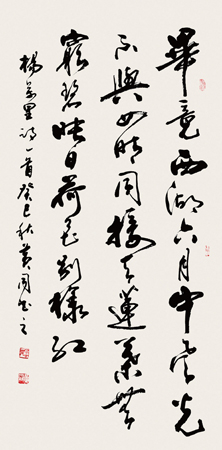 畢竟西湖六月中風光
不與四時同接天蓮葉無
窮碧映日荷花別樣紅
楊萬里詩一首癸巳秋黃書之